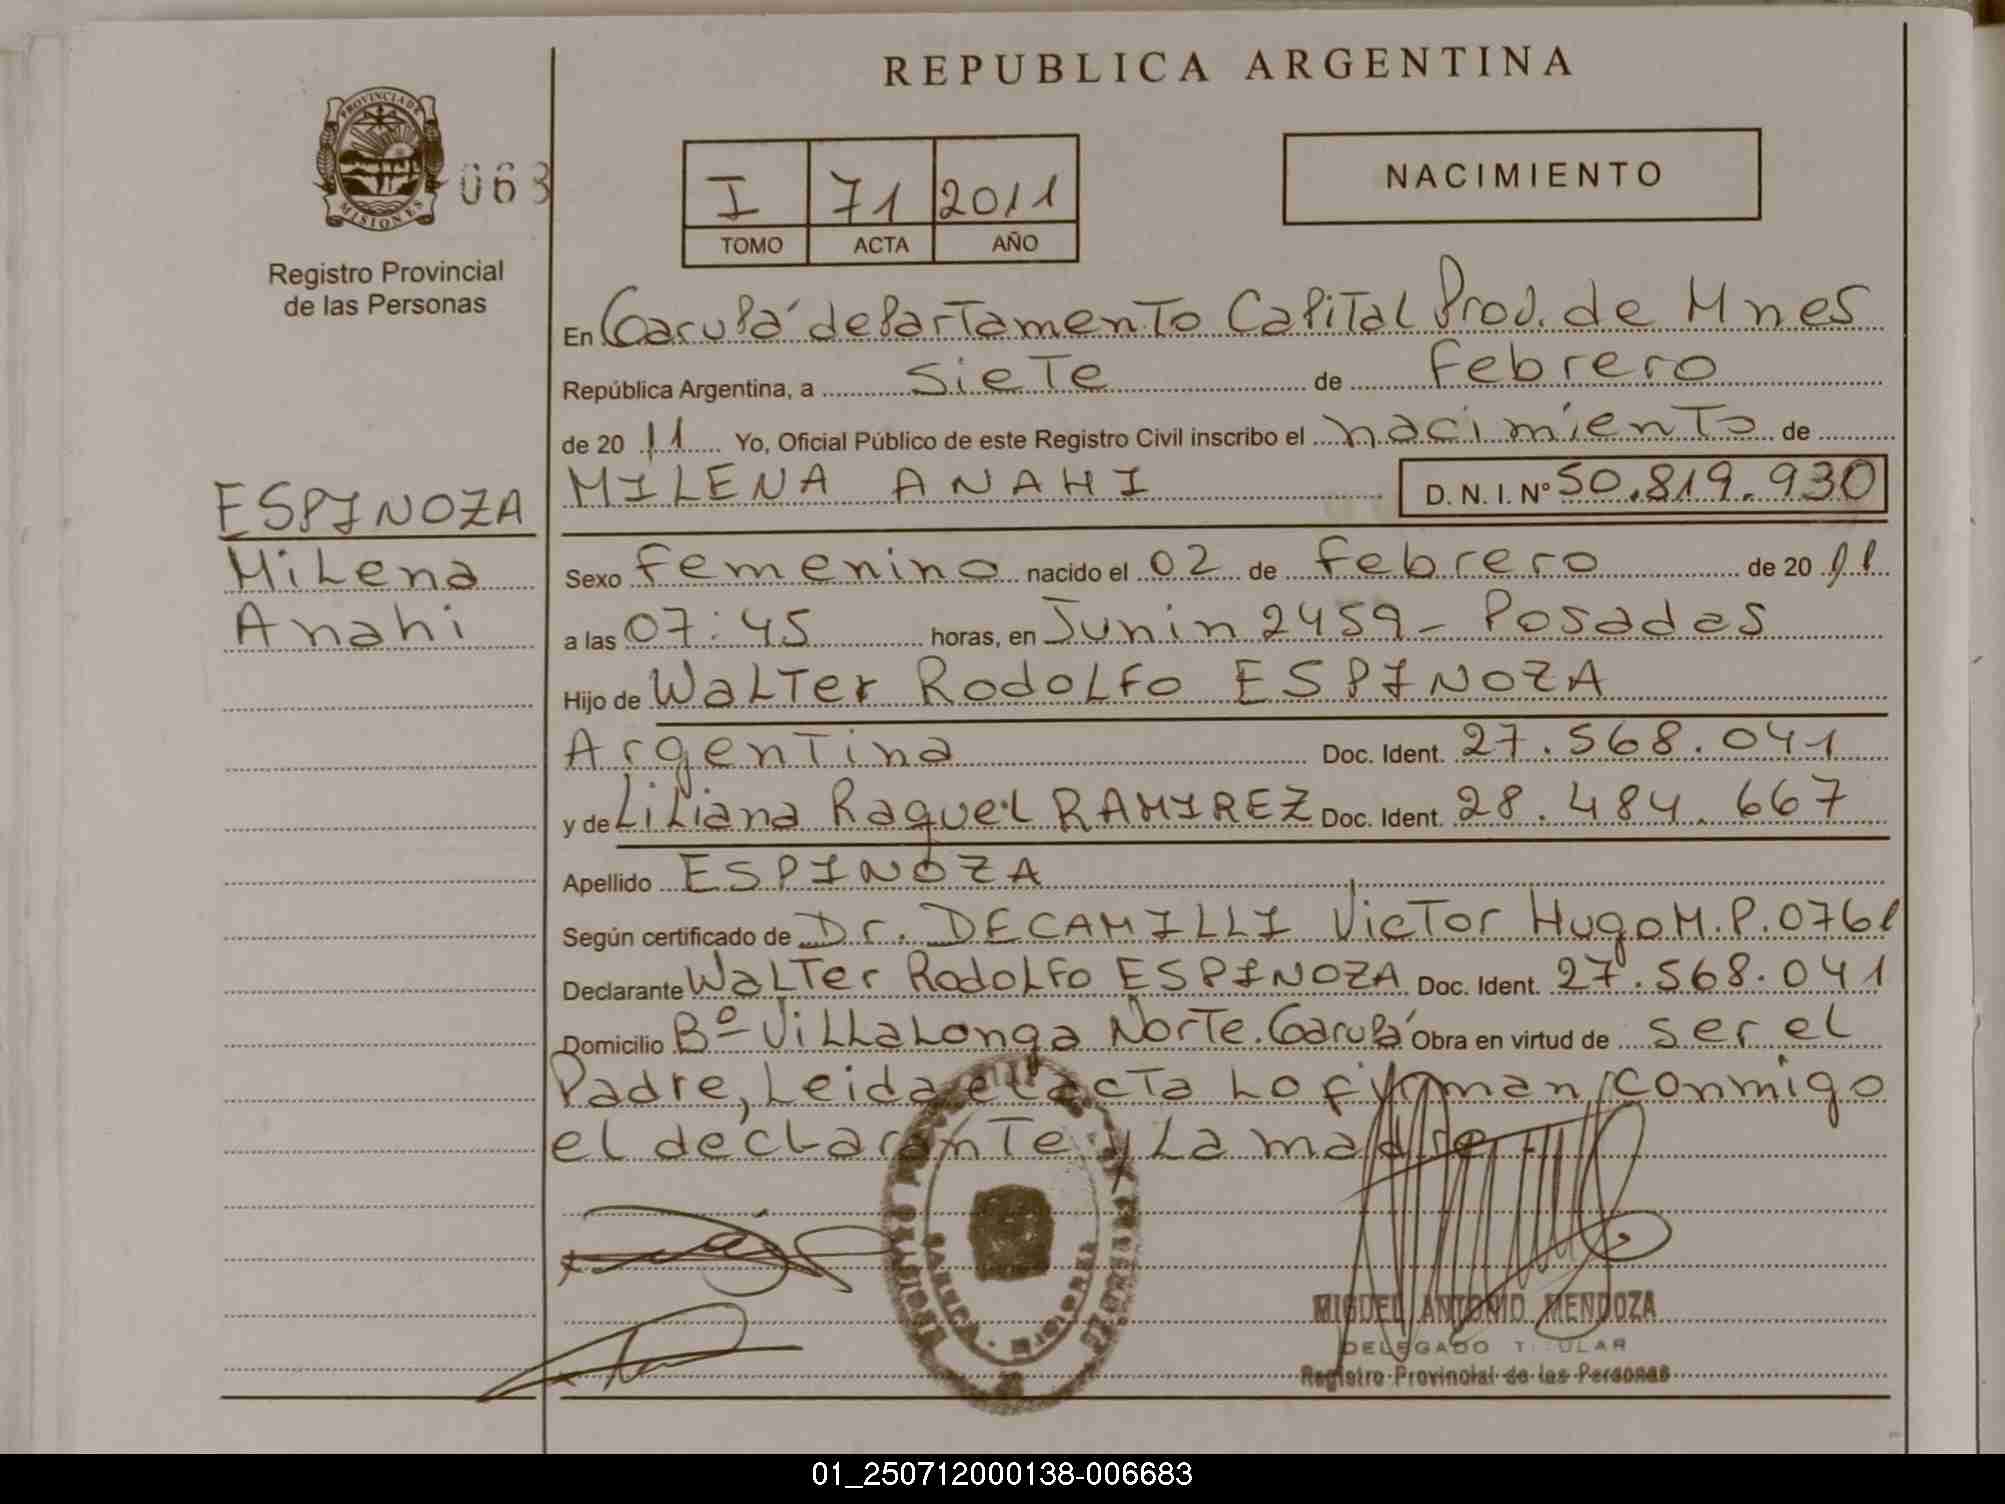 REPUBLICA ARGENTINA
PROVINCIA DE
MISIONES
063
Registro Provincial
de las Personas
I 71 2011
TOMO ACTA AÑO
NACIMIENTO
En Garupá departamento Capital Prov. de Mnes
República Argentina, a siete de Febrero
de 2011 Yo, Oficial Público de este Registro Civil inscribo el nacimiento de
MILENA ANAHI D. N. I. Nº 50.819.930
ESPINOZA
Milena
Anahi
Sexo Femenino nacido el 02 de Febrero de 2011
a las 07:45 horas, en Junin 2459 - Posadas
Hijo de Walter Rodolfo ESPINOZA
Argentina Doc. Ident. 27.568.041
y de Liliana Raquel RAMIREZ Doc. Ident. 28.484.667
Apellido ESPINOZA
Según certificado de Dr. DECAMILLI Victor Hugo M.P.0761
Declarante Walter Rodolfo ESPINOZA Doc. Ident. 27.568.041
Domicilio Bº Villalonga Norte. Garupá Obra en virtud de ser el
Padre, Leida el acta lo firman conmigo
el declarante y la madre
MIGUEL ANTONIO MENDOZA
DELEGADO TITULAR
Registro Provincial de las Personas
01_250712000138-006683